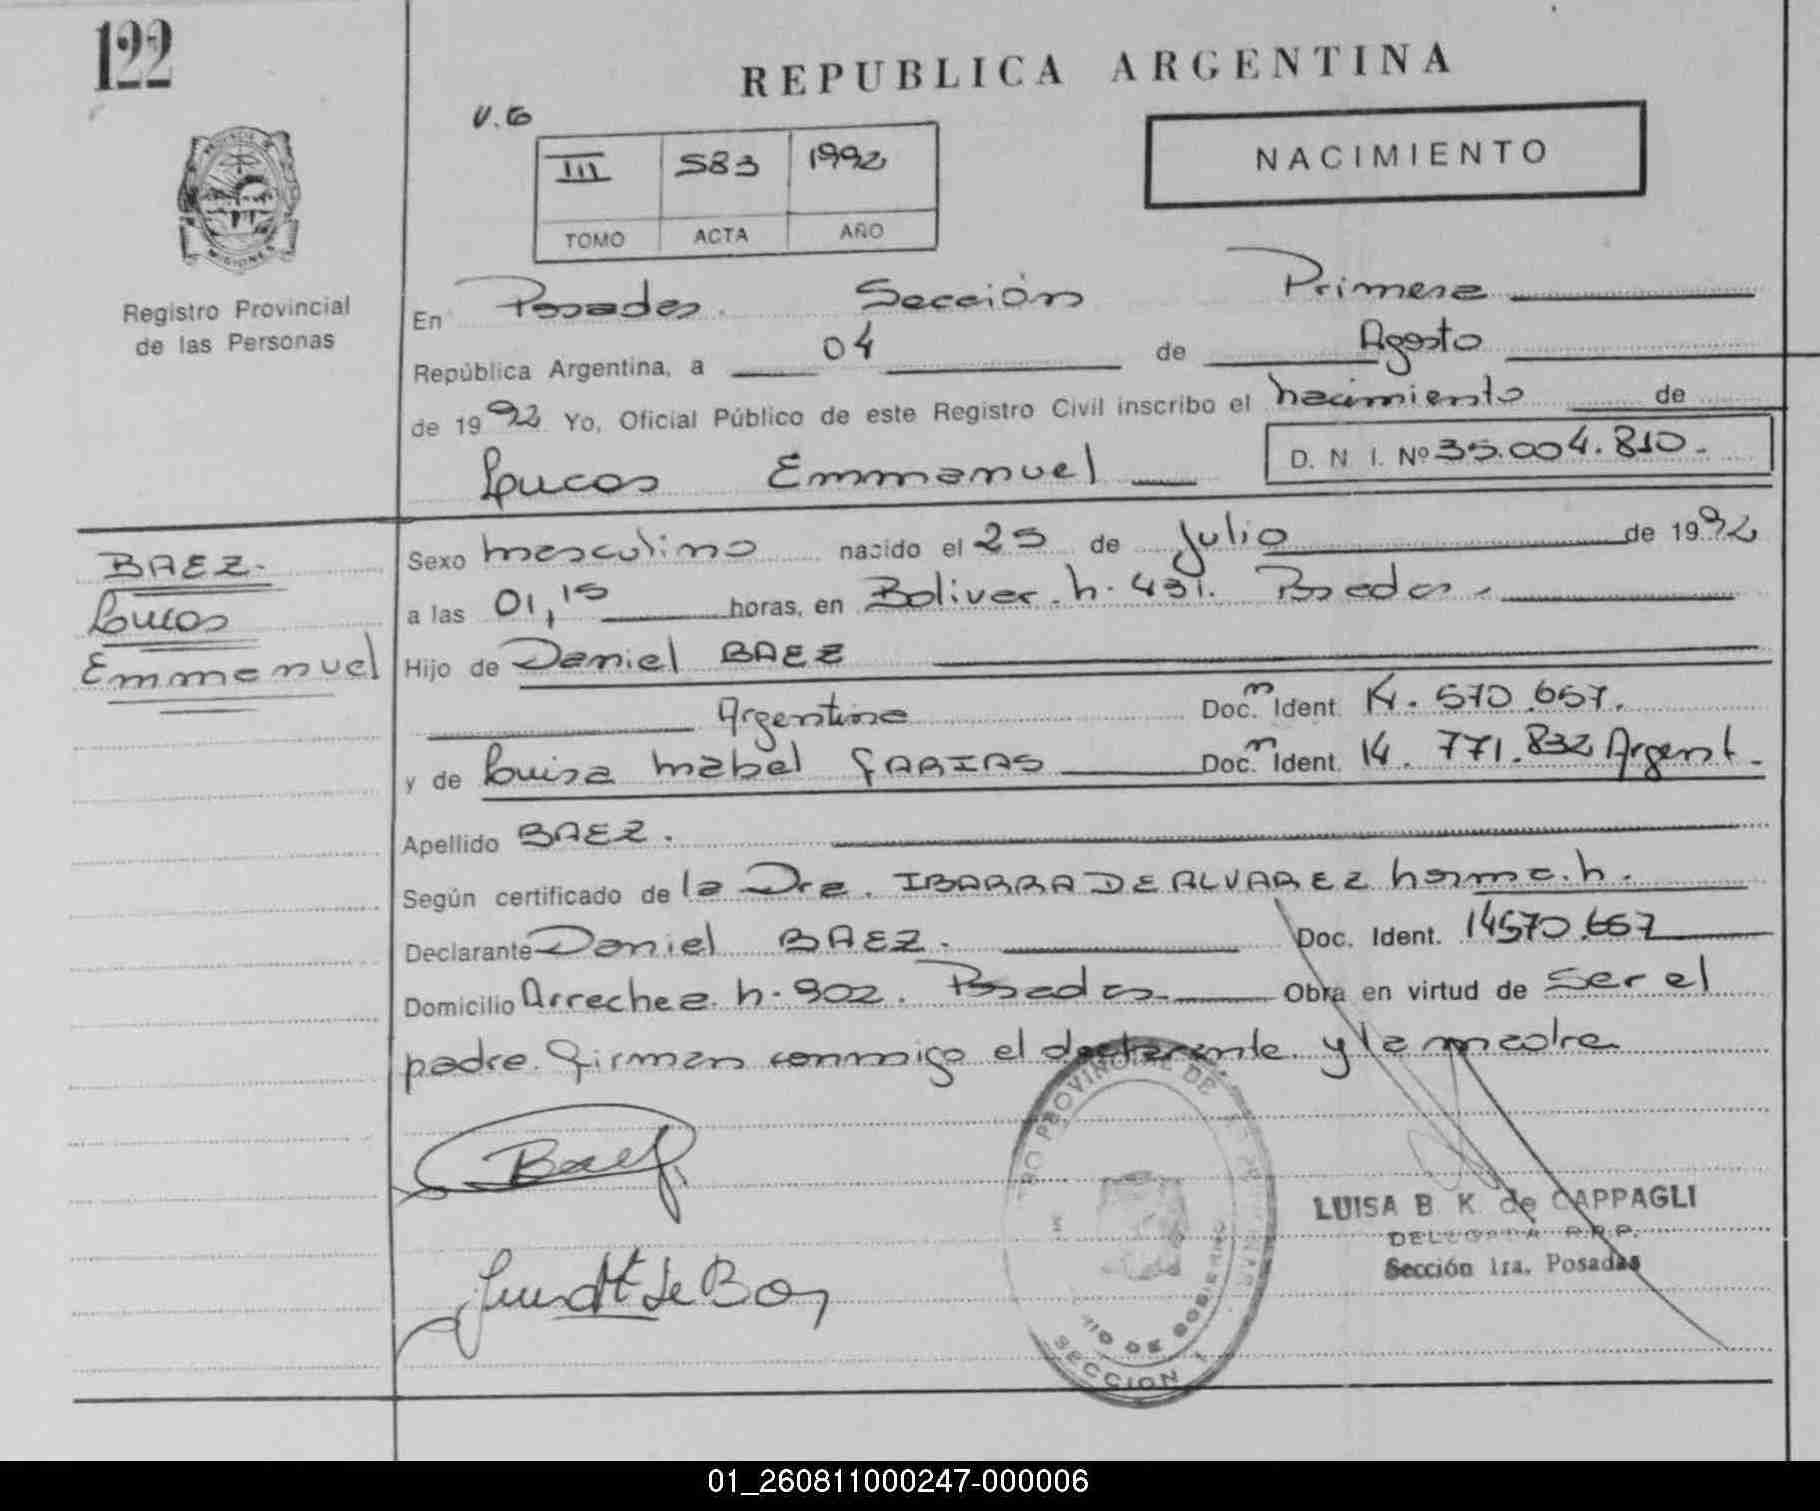 122
REPUBLICA ARGENTINA
V.G
III 583 1992
TOMO ACTA AÑO
NACIMIENTO
PROVINCIA DE
MISIONES
Registro Provincial
de las Personas
En Posadas. Sección Primera
República Argentina, a 04 de Agosto
de 1992 Yo, Oficial Público de este Registro Civil inscribo el nacimiento de
Lucas Emmanuel D. N. I. Nº 35.004.810.-
BAEZ.
Lucas
Emmanuel
Sexo masculino nacido el 25 de Julio de 1992
a las 01,15 horas, en Bolivar. n. 431. Posadas.
Hijo de Daniel BAEZ
Argentino Doc.m Ident. 14. 570.657.
y de Luisa Mabel FARIAS Doc.m Ident. 14. 771.832 Argent.
Apellido BAEZ.
Según certificado de la Dra. IBARRA DE ALVAREZ Norma. h.
Declarante Daniel BAEZ. Doc. Ident. 14570.657
Domicilio Arrechea. n. 902. Posadas Obra en virtud de ser el
padre. Firman conmigo el declarante. y la madre
Baez
de
PROVINCIAL DE
DE GOBIERNO
SECCION 1
LUISA B. K. de CAPPAGLI
DELEGADA R.R.P.
Sección 1ra. Posadas
01_260811000247-000006